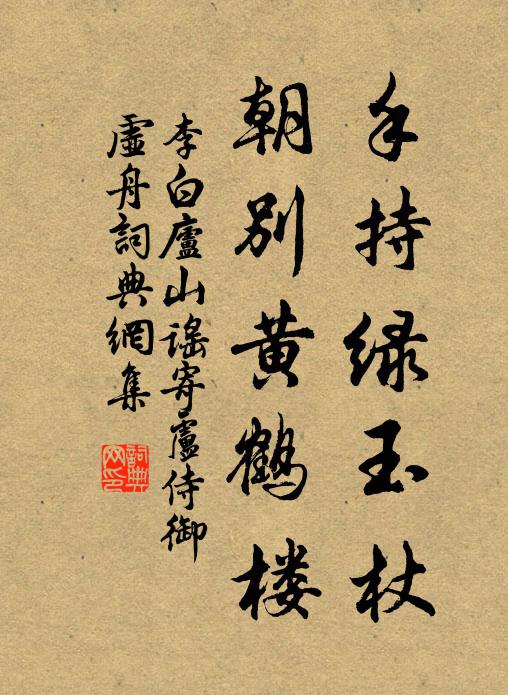 手持绿玉杖
朝别黄鹤楼
李白廬山謠寄廬侍御
虛舟詞典網集
詞典
网印